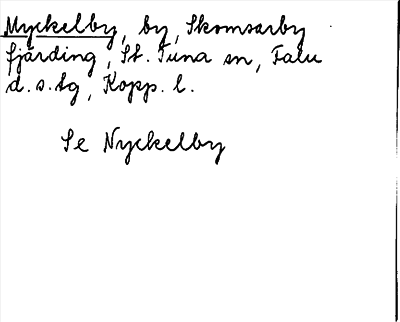 Myckelby, by, Skomsarby
fjärding, St. Tuna sn, Falu
d.s.tg, Kopp. l.
Se Nyckelby